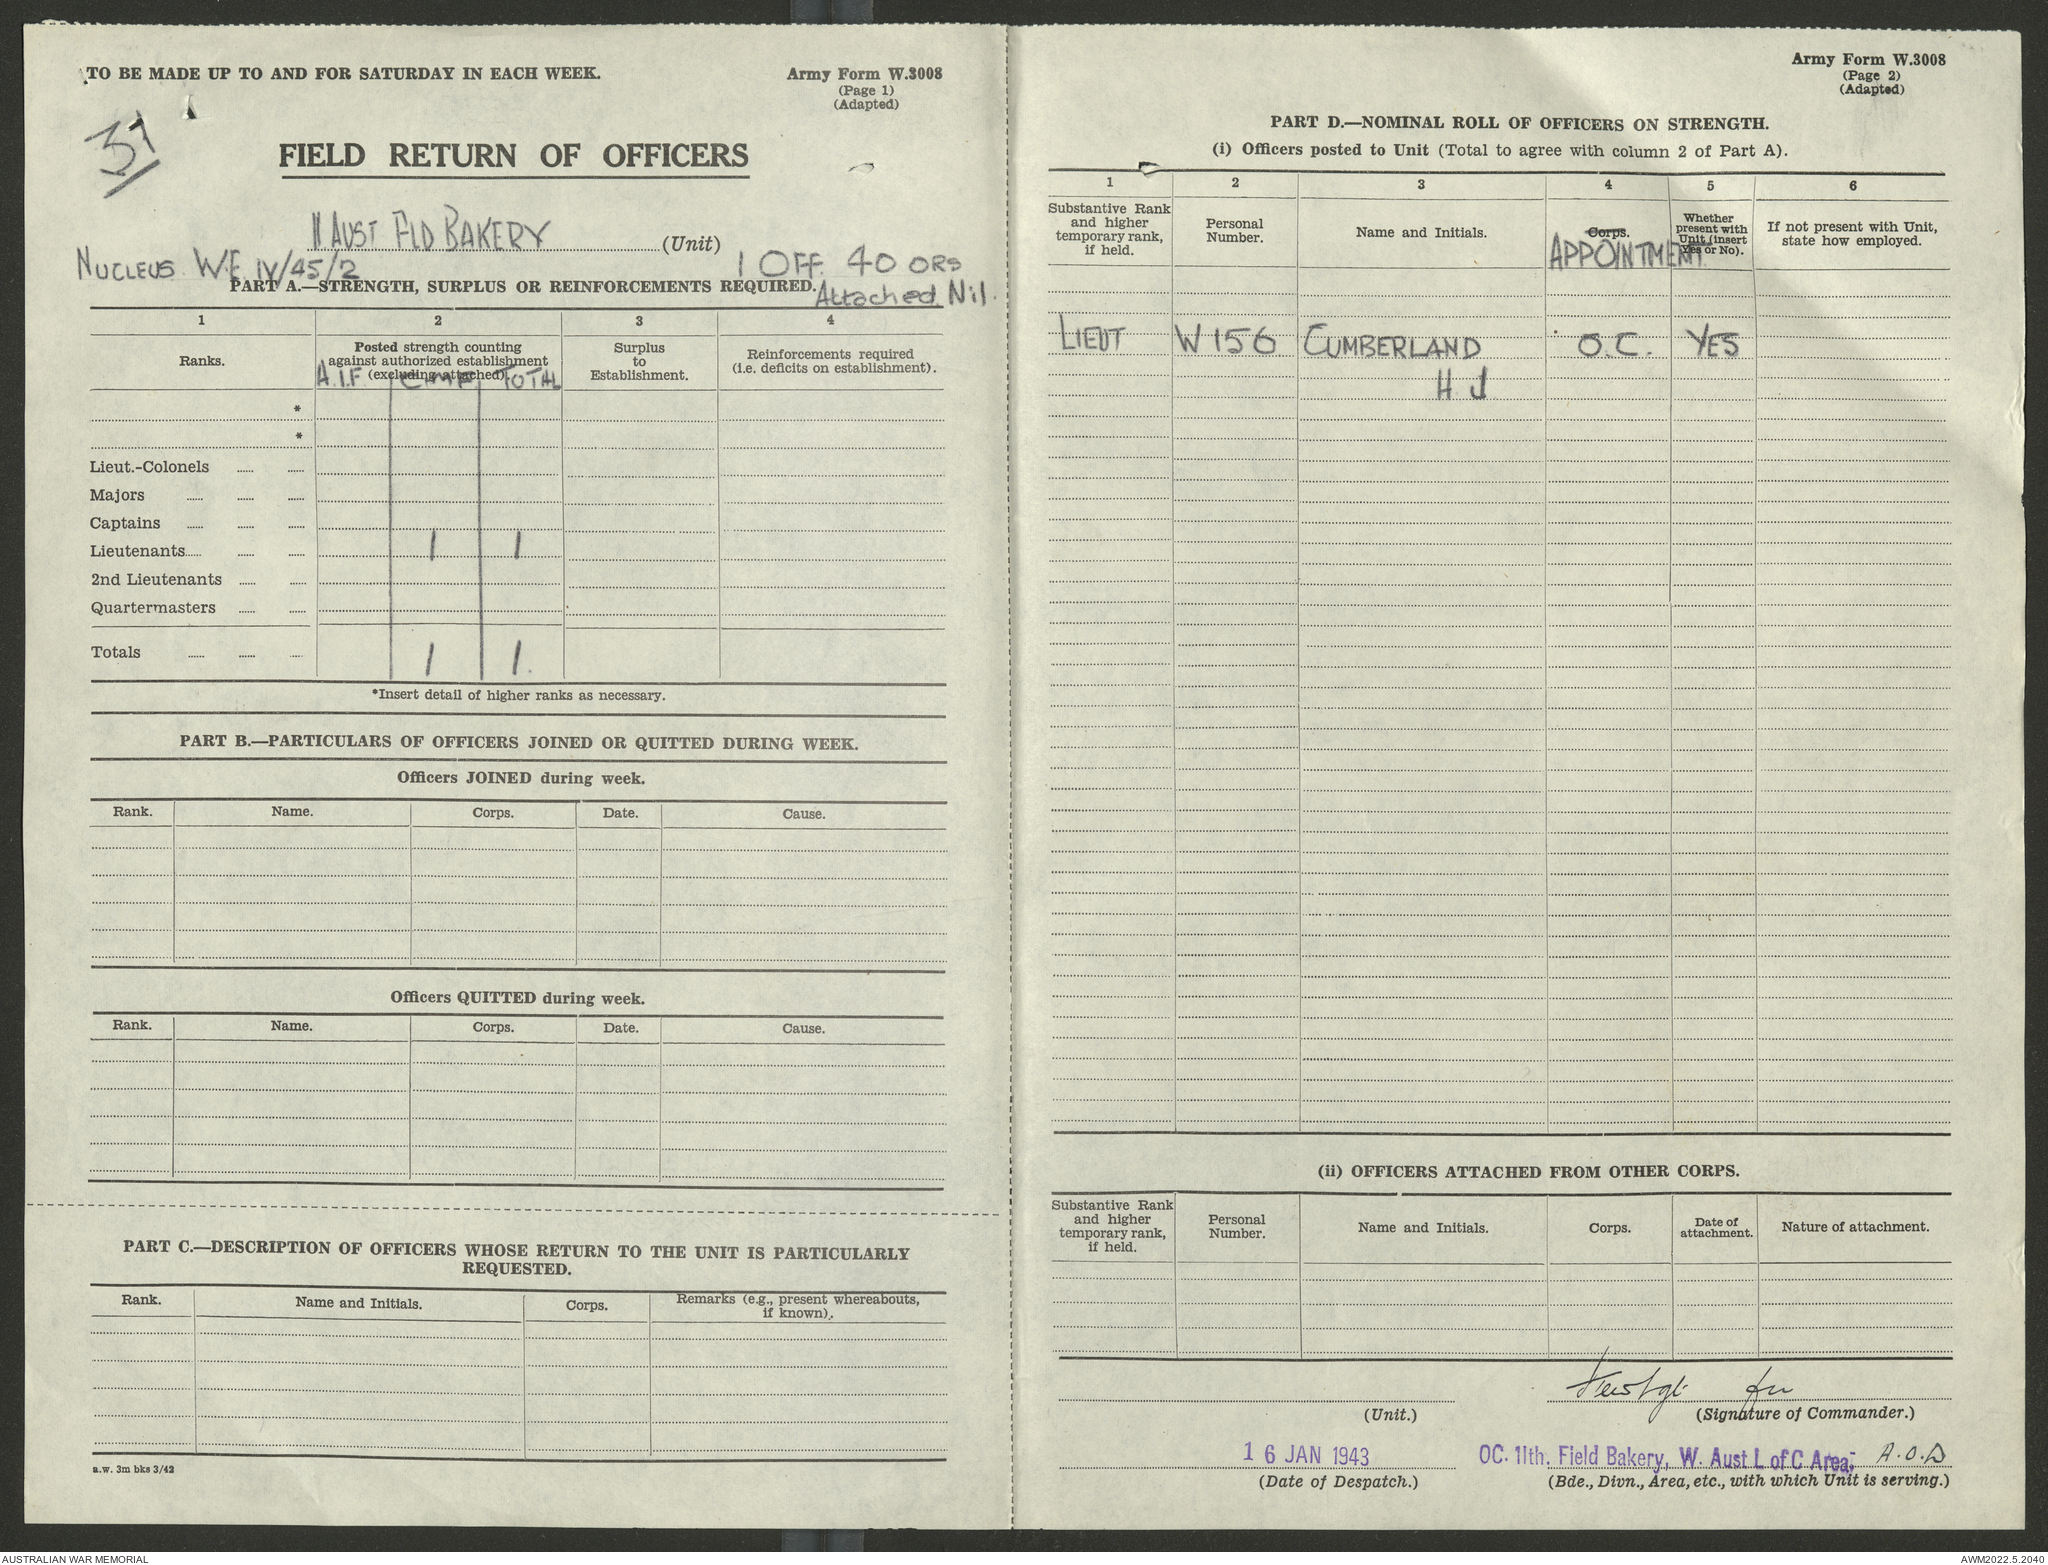 TO BE MADE UP TO AND FOR SATURDAY IN EACH WEEK.
Army Form W.3008
(Page 1)
(Adapted)
37
FIELD RETURN OF OFFICERS
11 AUST FLD BAKERY (Unit)
NUCLEUS W.E IV/45/2 1 OFF. 40 ORS
PART A.—STRENGTH, SURPLUS OR REINFORCEMENTS REQUIRED. Attached Nil.
1 2 3 4
Ranks.
Posted strength counting
against authorized establishment
(excluding attached)
Surplus
to
Establishment.
Reinforcements required
(i.e. deficits on establishment).
A.I.F. CMF TOTAL
*
*
Lieut.-Colonels
Majors
Captains
Lieutenants 1 1
2nd Lieutenants
Quartermasters
Totals 1 1.
*Insert detail of higher ranks as necessary.
PART B.—PARTICULARS OF OFFICERS JOINED OR QUITTED DURING WEEK.
Officers JOINED during week.
Rank. Name. Corps. Date. Cause.
Officers QUITTED during week.
Rank. Name. Corps. Date. Cause.
PART C.—DESCRIPTION OF OFFICERS WHOSE RETURN TO THE UNIT IS PARTICULARLY
REQUESTED.
Rank. Name and Initials. Corps. Remarks (e.g., present whereabouts,
if known).
a.w. 3m bks 3/42
Army Form W.3008
(Page 2)
(Adapted)
PART D.—NOMINAL ROLL OF OFFICERS ON STRENGTH.
(i) Officers posted to Unit (Total to agree with column 2 of Part A).
1 2 3 4 5 6
Substantive Rank
and higher
temporary rank,
if held.
Personal
Number.
Name and Initials.
Corps.
APPOINTMENT
Whether
present with
Unit (insert
Yes or No).
If not present with Unit,
state how employed.
LIEUT W156 CUMBERLAND O.C. YES
H J
(ii) OFFICERS ATTACHED FROM OTHER CORPS.
Substantive Rank
and higher
temporary rank,
if held.
Personal
Number.
Name and Initials.
Corps.
Date of
attachment.
Nature of attachment.
for
(Unit.) (Signature of Commander.)
16 JAN 1943 OC. 11th. Field Bakery, W. Aust L of C Area,
(Date of Despatch.) (Bde., Divn., Area, etc., with which Unit is serving.)
AUSTRALIAN WAR MEMORIAL
AWM2022.5.2040